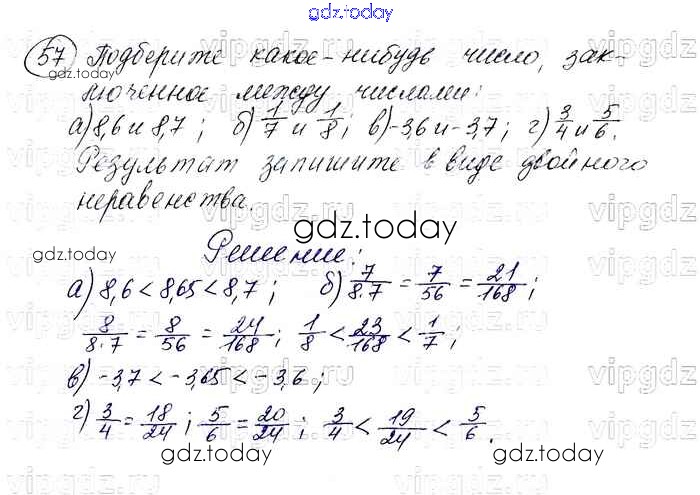 gdz.today
57 Подберите какое-нибудь число, зак-
gdz.today
люченное между числами:
а) 8,6 и 8,7; б) 1/7 и 1/8; в) -3,6 и -3,7; г) 3/4 и 5/6.
Результат запишите в виде двойного
неравенства.
gdz.today
gdz.today
Решение:
а) 8,6 < 8,65 < 8,7; б) 7/8·7 = 7/56 = 21/168;
8/8·7 = 8/56 = 24/168; 1/8 < 23/168 < 1/7;
в) -3,7 < -3,65 < -3,6;
г) 3/4 = 18/24; 5/6 = 20/24; 3/4 < 19/24 < 5/6.
gdz.today
gdz.today
vipgdz.ru
vipgdz.ru
vipgdz.ru
vipgdz.ru